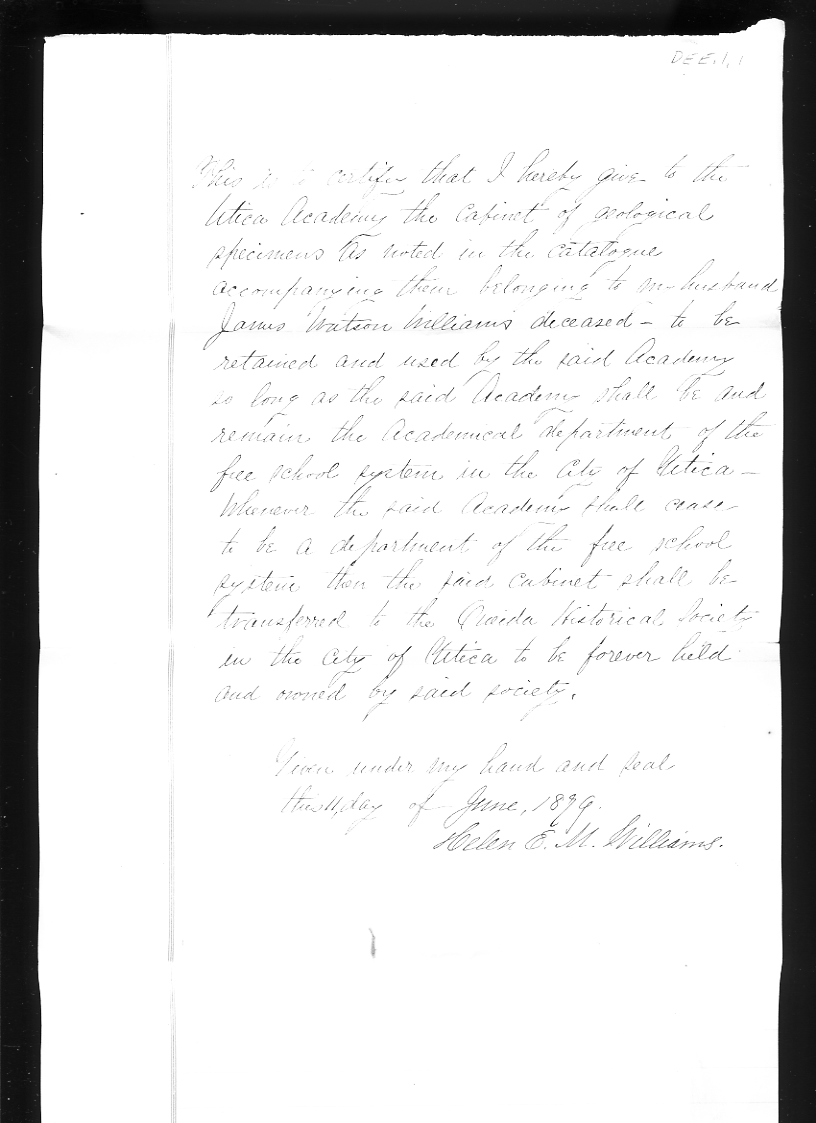 DEE.1.1
This is to certify that I hereby give to the
Utica Academy the Cabinet of geological
specimens as noted in the catalogue
accompanying them belonging to my husband
James Watson Williams deceased – to be
retained and used by the said Academy
so long as the said Academy shall be and
remain the Academical department of the
free school system in the City of Utica –
Whenever the said Academy shall cease
to be a department of the free school
system then the said cabinet shall be
transferred to the Oneida Historical Society
in the City of Utica to be forever held
and owned by said society.
Given under my hand and seal
this 11, day of June, 1879.
Helen E. M. Williams.